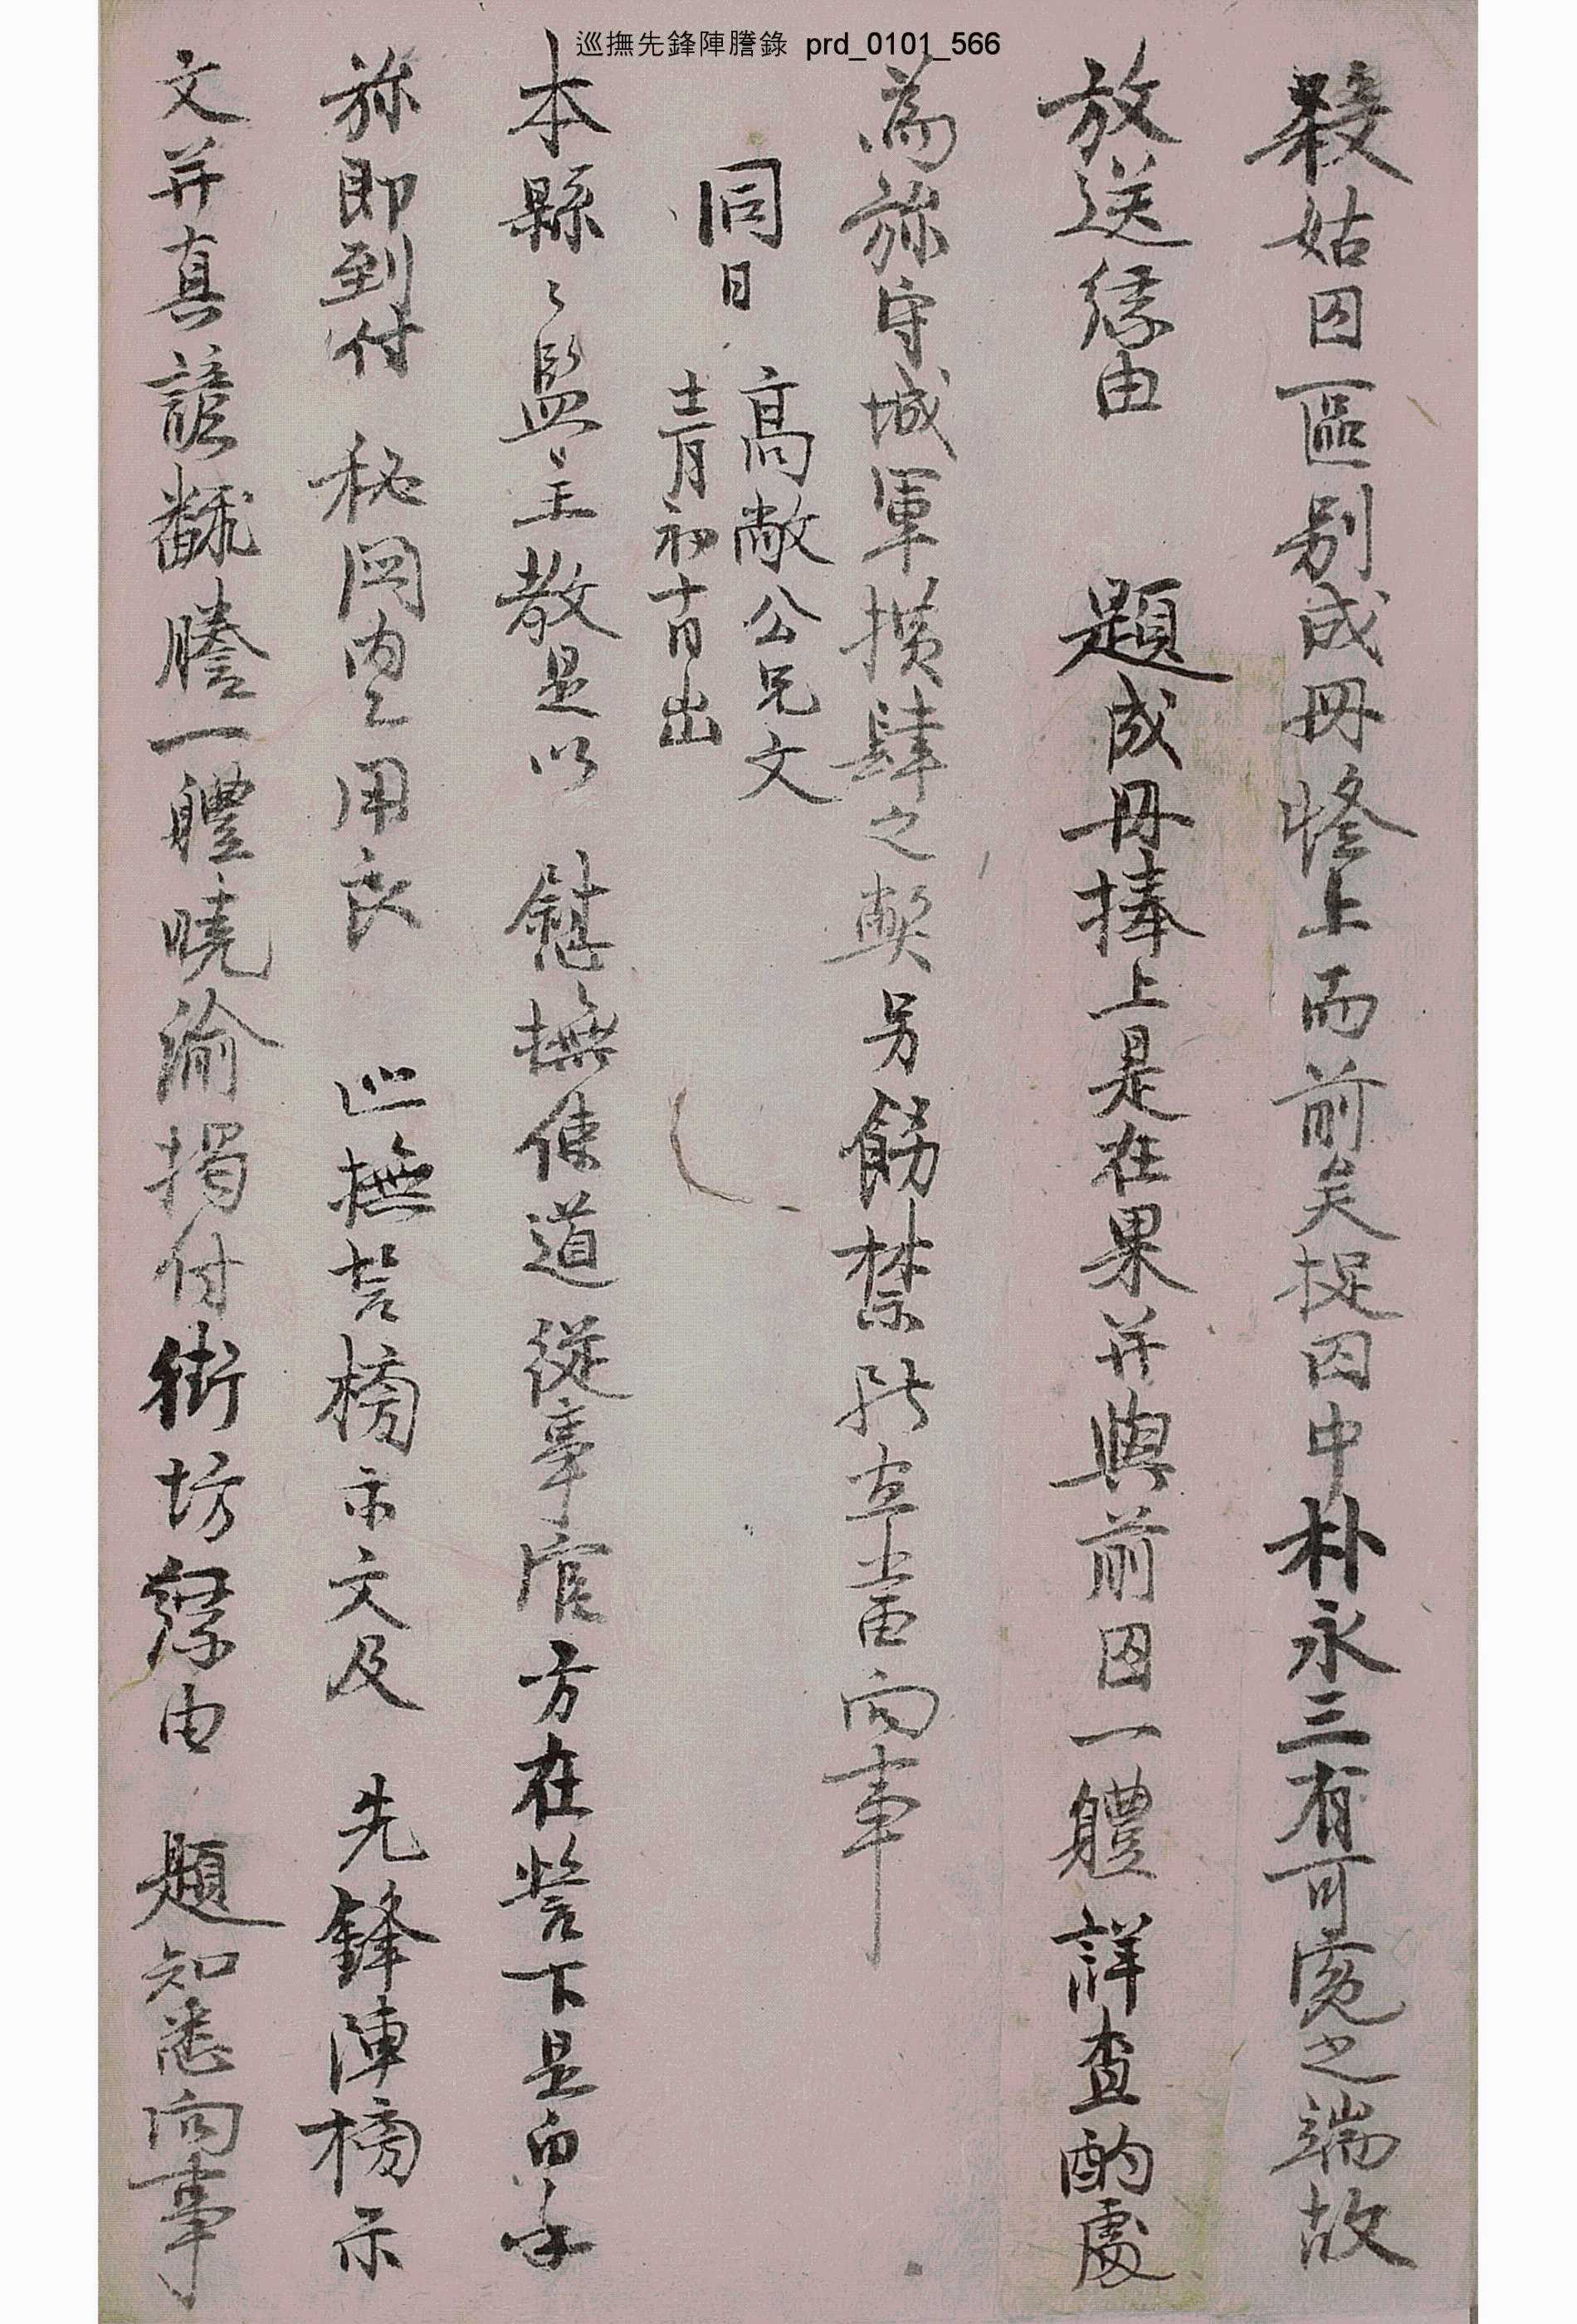 巡撫先鋒陣謄錄 prd_0101_566
殺姑囚區別成冊修上而前矣捉囚中朴永三有可寃之端故
放送緣由 題成冊捧上是在果幷與前囚一軆詳查酌處
爲旀守城軍橫肆之弊另飭禁斷宜當向事
同日 高敞公兄文
十二月初十日出
本縣々監主敎是以 慰撫使道從事官方在營下是白乎
旀卽到付 秘関內乙用良 巡撫營榜示文及 先鋒陣榜示
文幷眞諺飜謄一軆曉諭揭付街坊緣由 題知悉向事